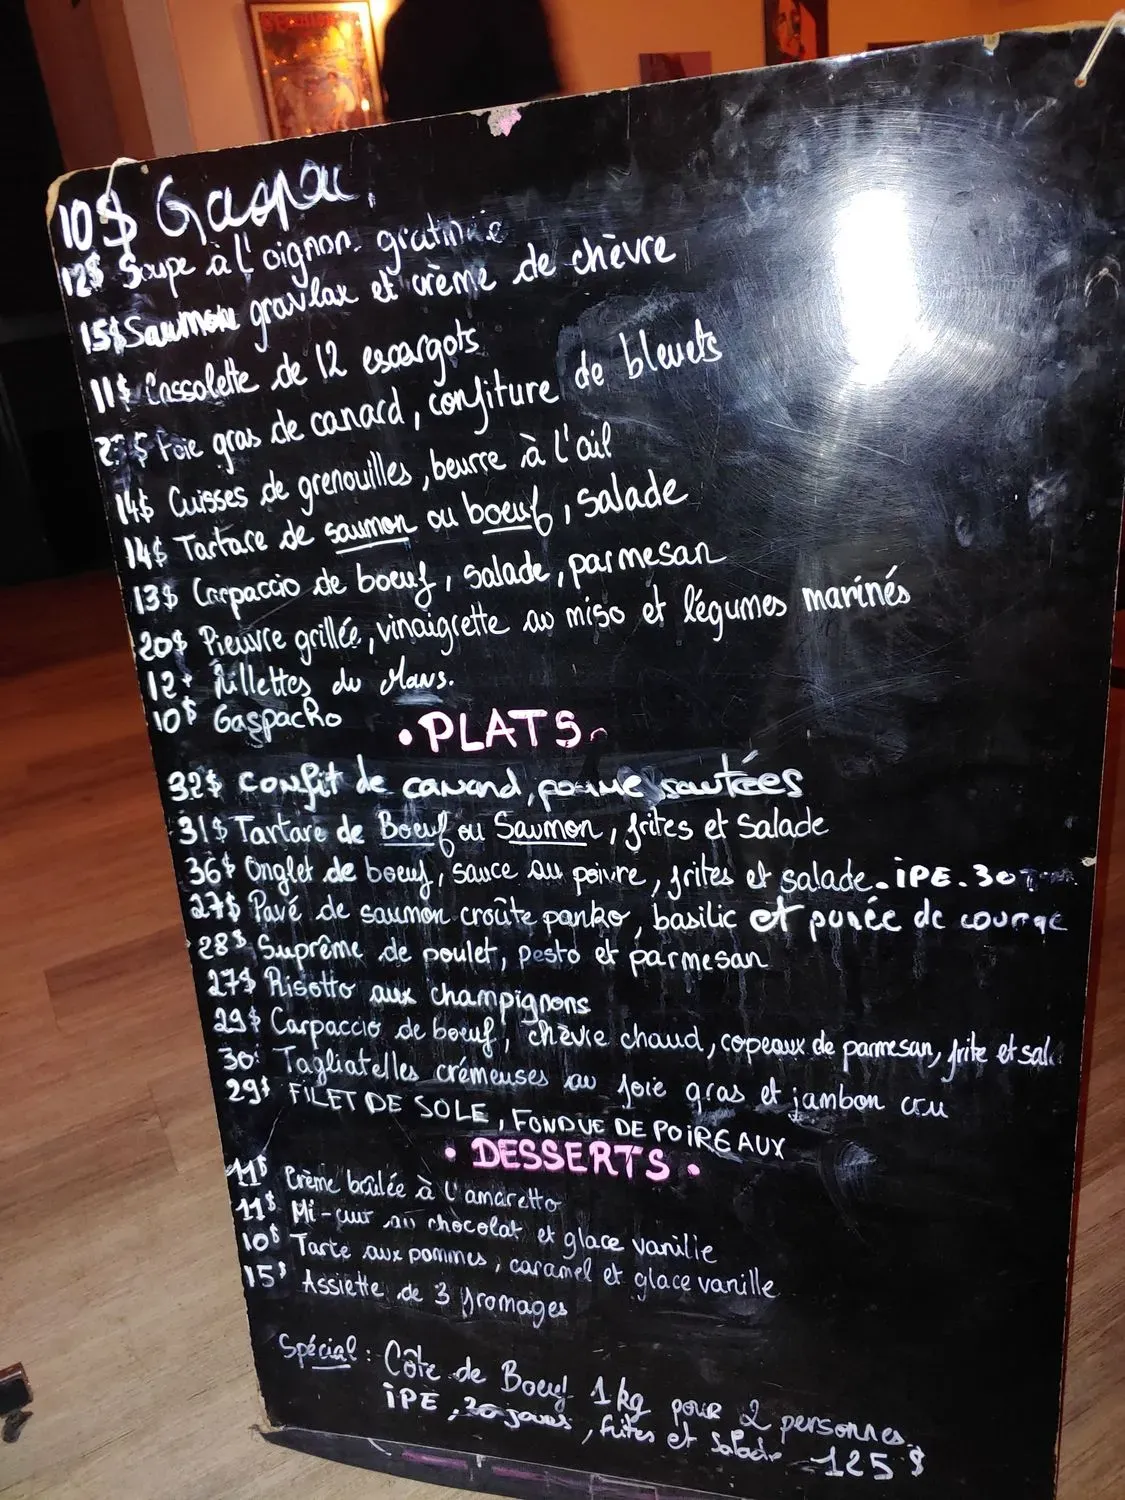 10$ Gaspou,
12$ Soupe à l'oignon gratinée
15$ Saumon gravlax et crème de chèvre
11$ Cassolette de 12 escargots
$ Foie gras de canard, confiture de bleuets
14$ Cuisses de grenouilles, beurre à l'ail
14$ Tartare de saumon ou boeuf, salade
13$ Carpaccio de boeuf, salade, parmesan
20$ Pieuvre grillée, vinaigrette au miso et légumes marinés
12 Rillettes du Mans.
10$ Gaspacho
• PLATS
32$ Confit de canard, pomme sautées
31$ Tartare de Boeuf ou Saumon, frites et salade
36$ Onglet de boeuf, sauce au poivre, frites et salade. iPE. 30
27$ Pavé de saumon croûte panko, basilic et purée de courge
28$ Suprême de poulet, pesto et parmesan
27$ Risotto aux champignons
29$ Carpaccio de boeuf, chèvre chaud, copeaux de parmesan, frite et sal
30 Tagliatelles crémeuses au foie gras et jambon cru
29$ FILET DE SOLE, FONDUE DE POIREAUX
• DESSERTS •
11$ Crème brûlée à l'amaretto
11$ Mi-cuit au chocolat et glace vanille
10$ Tarte aux pommes, caramel et glace vanille
15$ Assiette de 3 fromages
Spécial : Côte de Boeuf 1kg pour 2 personnes.
iPE, 30 jours, frites et salade 125$